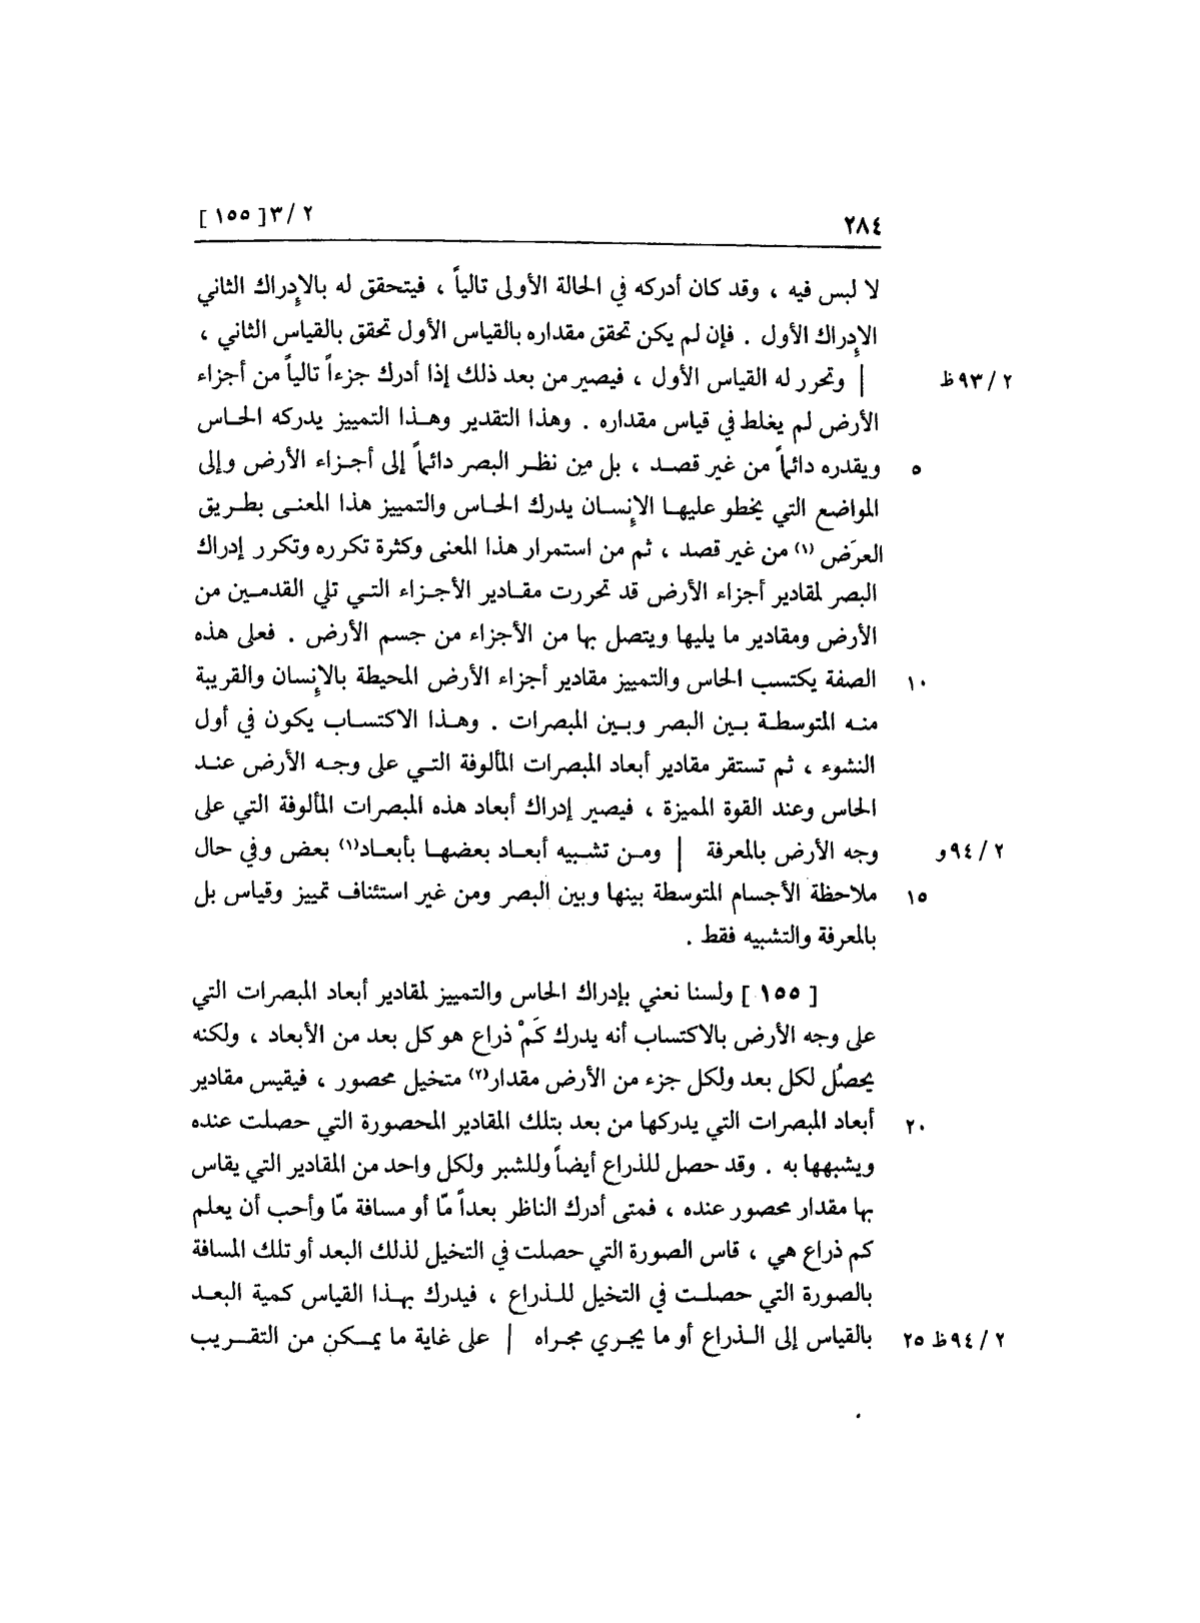 ٢٨٤ ٢ /٣[ ١٥٥ ]
لا لبس فيه ، وقد كان أدركه في الحالة الأولى تالياً ، فيتحقق له بالإدراك الثاني
الإدراك الأول . فإن لم يكن تحقق مقداره بالقياس الأول تحقق بالقياس الثاني ،
٢ /٩٣ظ | وتحرر له القياس الأول ، فيصير من بعد ذلك إذا أدرك جزءاً تالياً من أجزاء
الأرض لم يغلط في قياس مقداره . وهذا التقدير وهـذا التمييز يدركه الحـاس
٥ ويقدره دائماً من غير قصـد ، بل مِن نظـر البصر دائماً إلى أجـزاء الأرض وإلى
المواضع التي يخطو عليهـا الإنسـان يدرك الحـاس والتمييز هذا المعنـى بطـريق
العرَض (١) من غير قصد ، ثم من استمرار هذا المعنى وكثرة تكرره وتكرر إدراك
البصر لمقادير أجزاء الأرض قد تحررت مقـادير الأجـزاء التـي تلي القدمـين من
الأرض ومقادير ما يليها ويتصل بها من الأجزاء من جسم الأرض . فعلى هذه
١٠ الصفة يكتسب الحاس والتمييز مقادير أجزاء الأرض المحيطة بالإنسان والقريبة
منـه المتوسطـة بـين البصر وبـين المبصرات . وهـذا الاكتسـاب يكون في أول
النشوء ، ثم تستقر مقادير أبعاد المبصرات المألوفة التـي على وجـه الأرض عنـد
الحاس وعند القوة المميزة ، فيصير إدراك أبعاد هذه المبصرات المألوفة التي على
٢ /٩٤و وجه الأرض بالمعرفة | ومـن تشـبيه أبعـاد بعضهـا بأبعـاد(١) بعض وفي حال
١٥ ملاحظة الأجسام المتوسطة بينها وبين البصر ومن غير استئناف تمييز وقياس بل
بالمعرفة والتشبيه فقط .
[ ١٥٥ ] ولسنا نعني بإدراك الحاس والتمييز لمقادير أبعاد المبصرات التي
على وجه الأرض بالاكتساب أنه يدرك كَمْ ذراع هو كل بعد من الأبعاد ، ولكنه
يحصُل لكل بعد ولكل جزء من الأرض مقدار(٢) متخيل محصور ، فيقيس مقادير
٢٠ أبعاد المبصرات التي يدركها من بعد بتلك المقادير المحصورة التي حصلت عنده
ويشبهها به . وقد حصل للذراع أيضاً وللشبر ولكل واحد من المقادير التي يقاس
بها مقدار محصور عنده ، فمتى أدرك الناظر بعداً مّا أو مسافة مّا وأحب أن يعلم
كم ذراع هي ، قاس الصورة التي حصلت في التخيل لذلك البعد أو تلك المسافة
بالصورة التي حصلـت في التخيل للـذراع ، فيدرك بهـذا القياس كمية البعـد
٢ /٩٤ظ ٢٥ بالقياس إلى الـذراع أو ما يجـري مجـراه | على غاية ما يمـكن من التقـريب